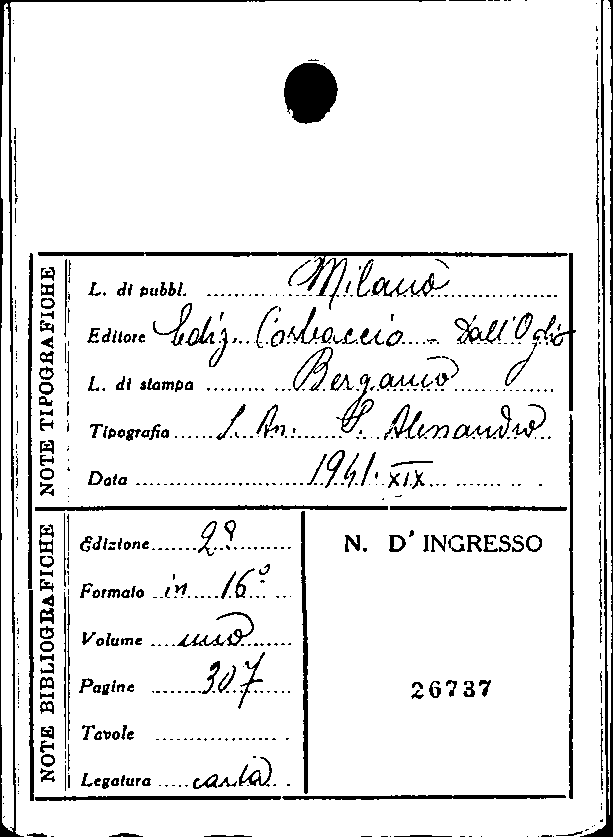 NOTE TIPOGRAFICHE
L. di pubbl. Milano
Editore Ediz. Corbaccio - Dall'Oglio
L. di stampa Bergamo
Tipografia S. An. S. Alessandro
Data 1941. XIX
NOTE BIBLIOGRAFICHE
Edizione 2ª
Formato in 16°
Volume uno
Pagine 307
Tavole
Legatura carta
N. D' INGRESSO
26737